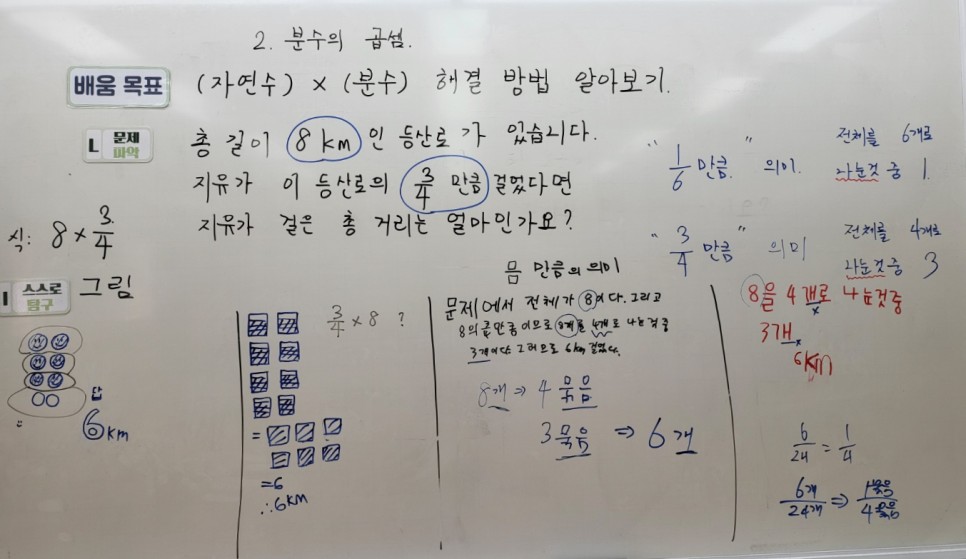 2. 분수의 곱셈.
배움 목표
(자연수) × (분수) 해결 방법 알아보기.
1. 문제 파악
총 길이 8 km 인 등산로가 있습니다.
지유가 이 등산로의 3/4 만큼 걸었다면
지유가 걸은 총 거리는 얼마인가요?
" 1/6 만큼 " 의미. 전체를 6개로
나눈것 중 1.
" 3/4 만큼 " 의미 전체를 4개로
나눈것 중 3
식: 8 × 3/4
스스로 탐구
그림
답
6km
3/4 × 8 ?
=
=6
∴6KM
만큼의 의미
문제에서 전체가 8이다. 그리고
8의 3/4만큼이므로 8개를 4개로 나눈것 중
3개이다. 그러므로 6km 걸었다.
8개 ⇒ 4 묶음
3묶음 ⇒ 6개
8을 4개로 나눈것중
3개
6km
6/24 = 1/4
6개/24개 ⇒ 1묶음/4묶음